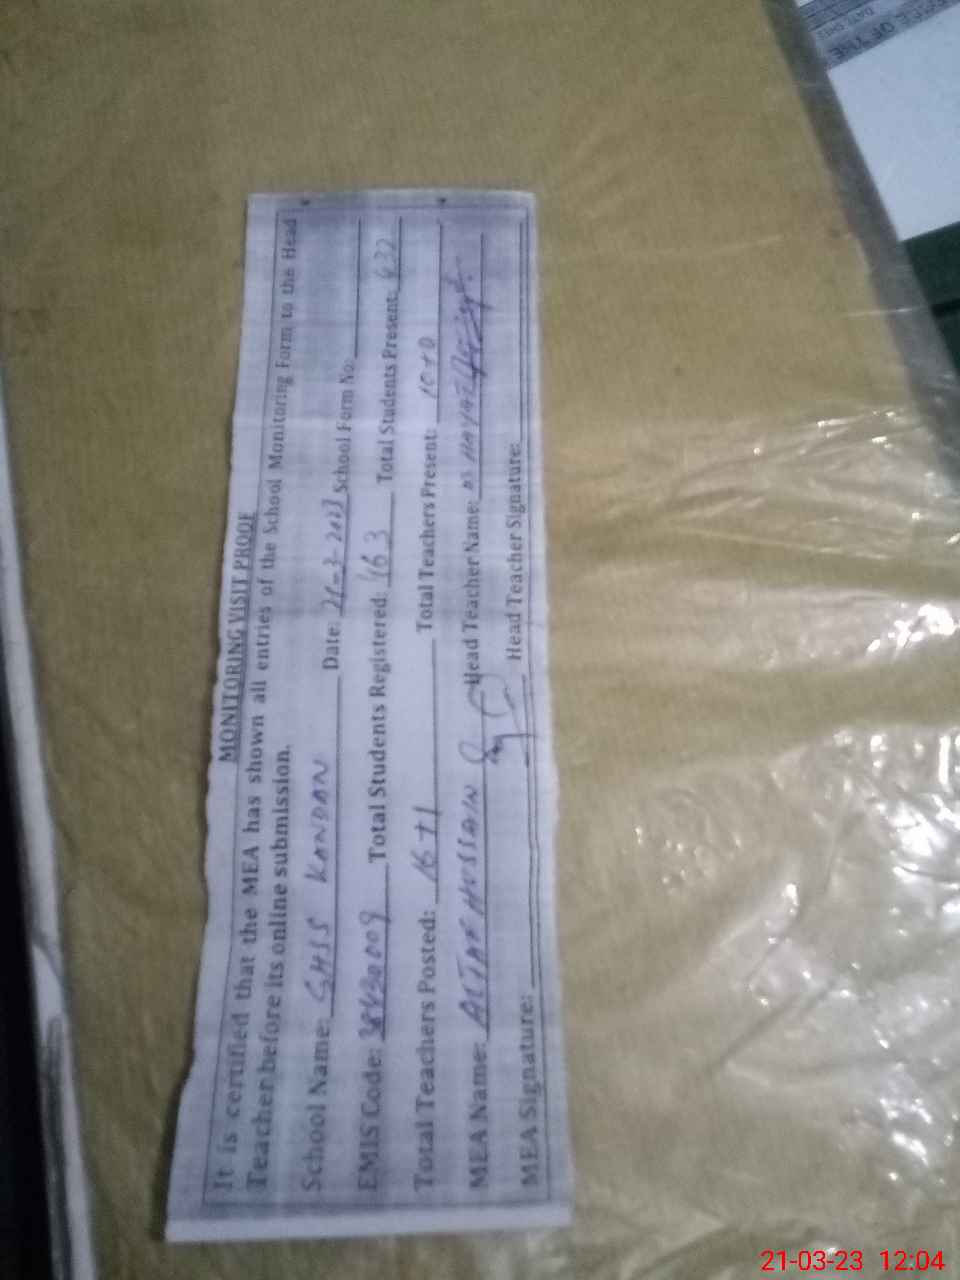 MONITORING VISIT PROOF
It is certified that the MEA has shown all entries of the School Monitoring Form to the Head
Teacher before its online submission.
School Name: GHSS KANDAN Date: 21-3-2023 School Form No:
EMIS Code: Total Students Registered: 463 Total Students Present: 432
Total Teachers Posted: 16+1 Total Teachers Present: 10+0
MEA Name: ALTAF HUSSAIN Head Teacher Name:
MEA Signature: Head Teacher Signature:
21-03-23 12:04